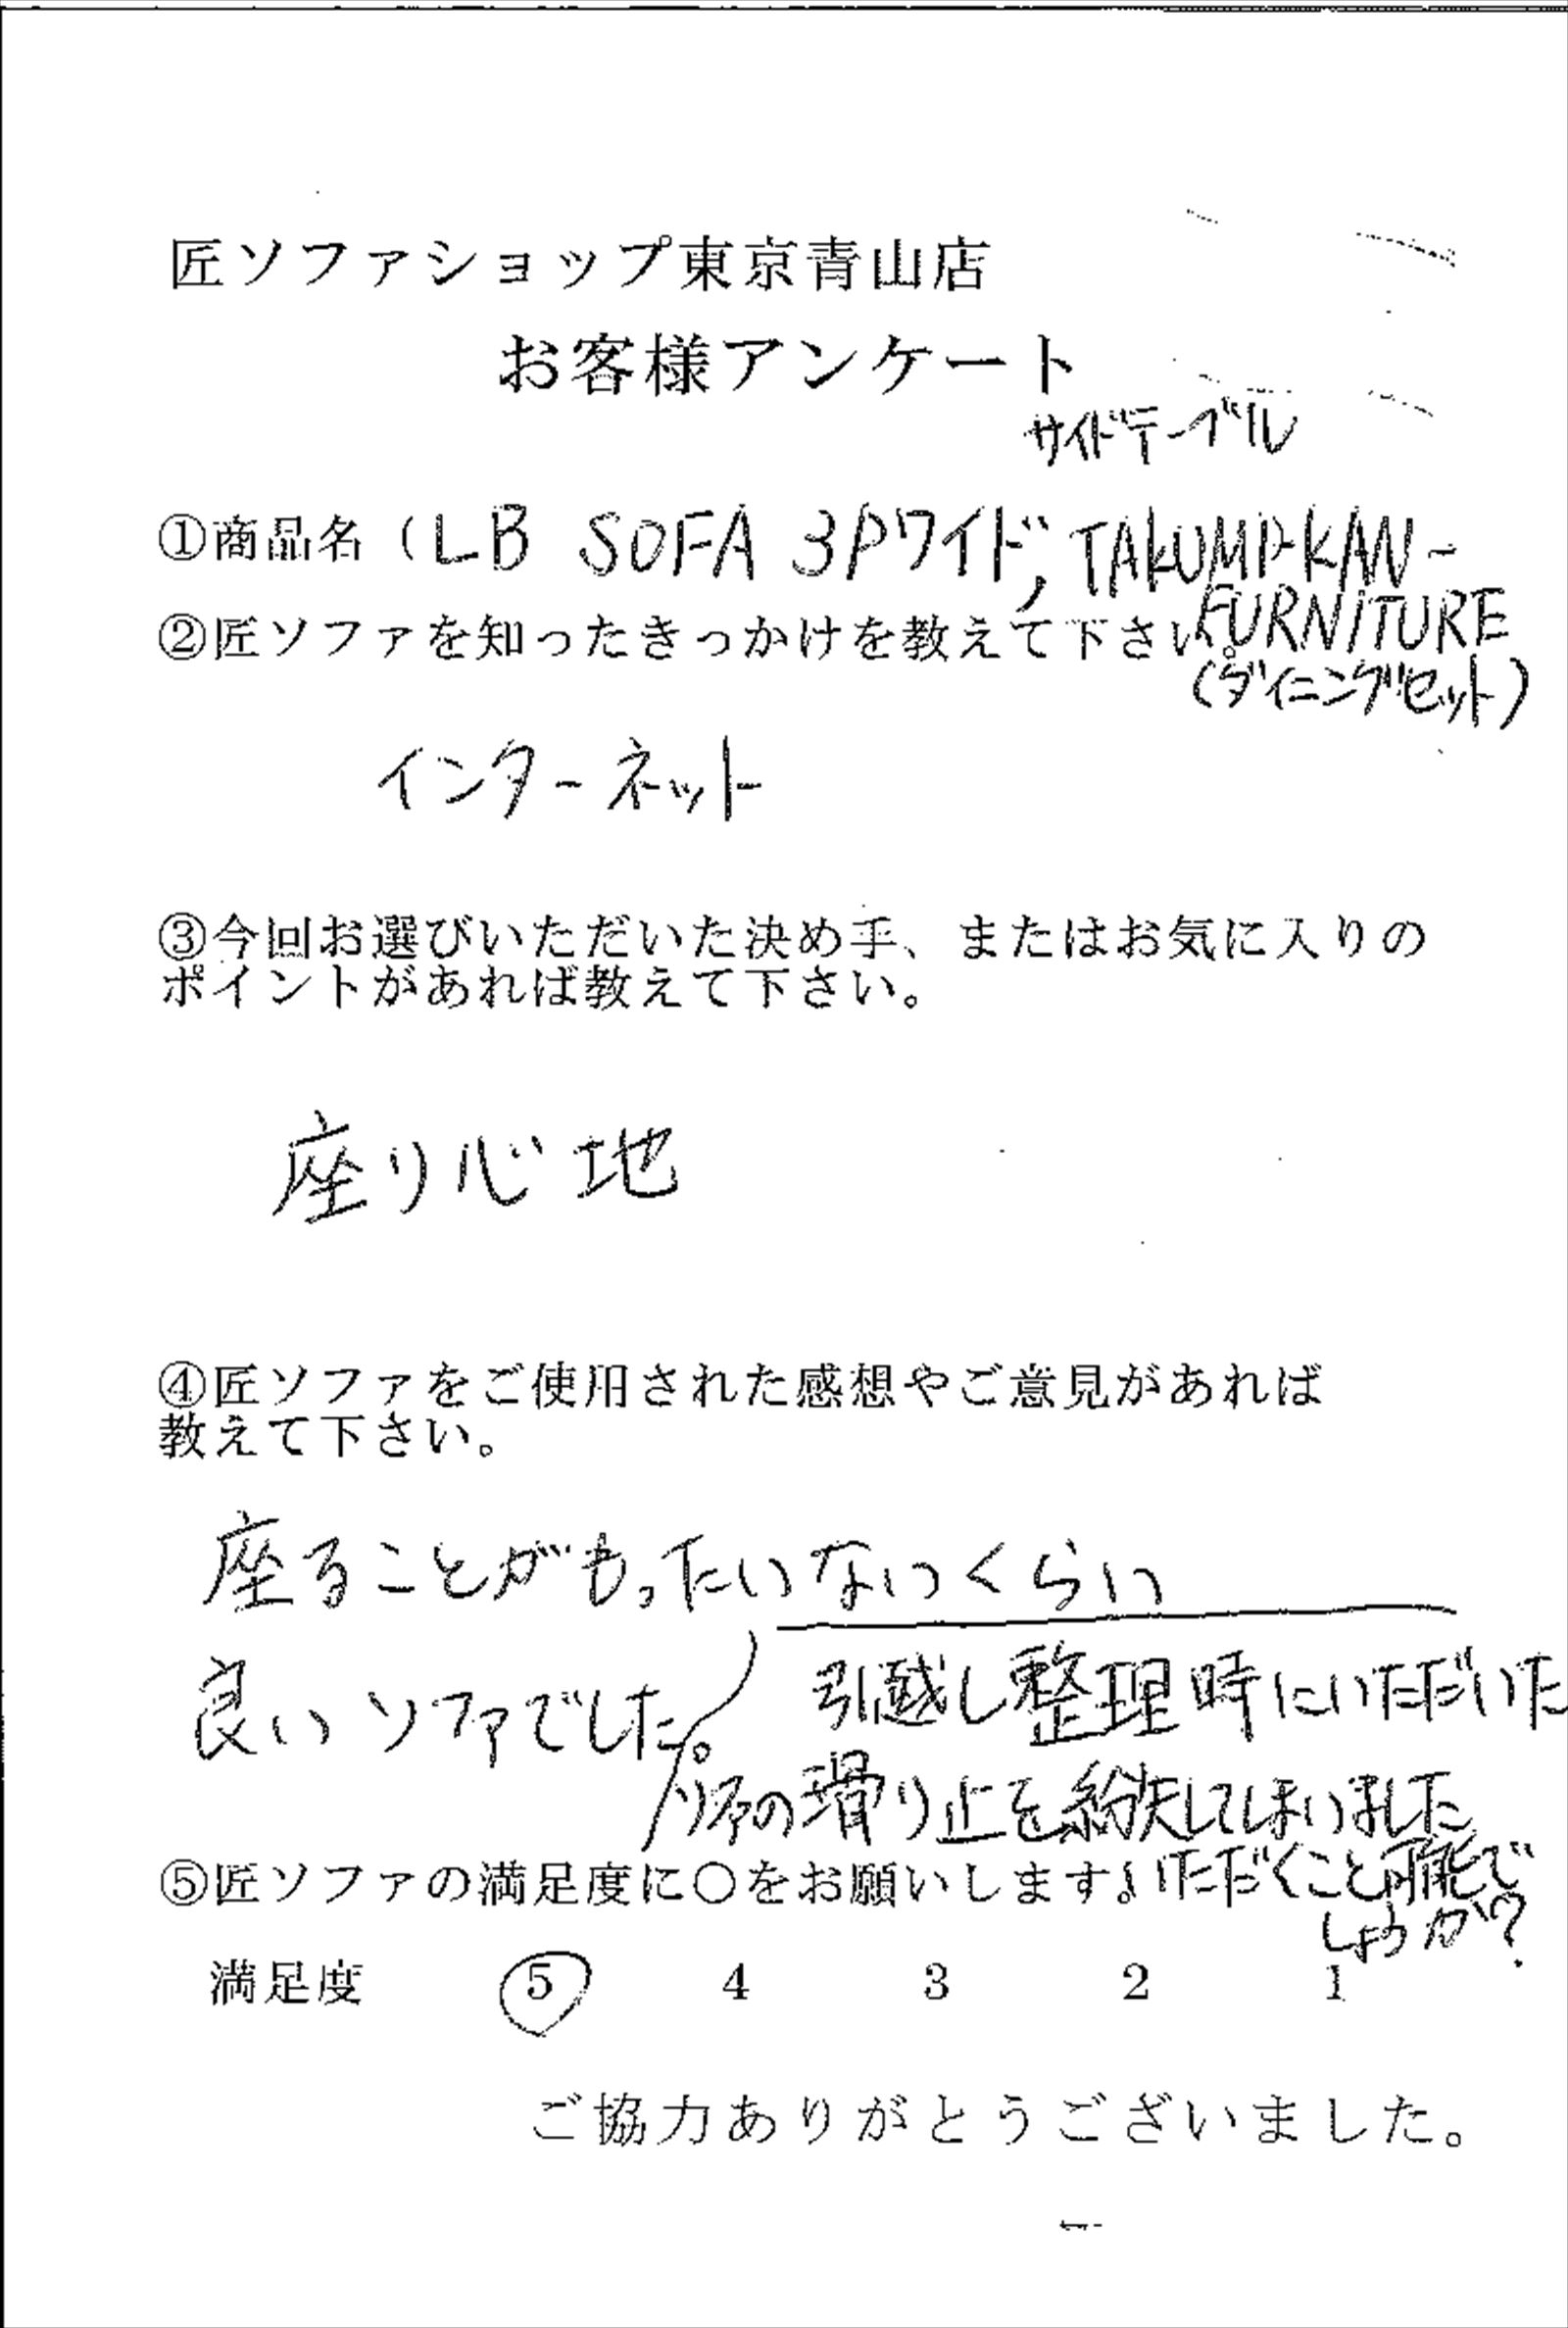 匠ソファショップ東京青山店
お客様アンケート
サイドテーブル
①商品名（LB SOFA 3Pワイド, TAKUMI-KAN-
FURNITURE
②匠ソファを知ったきっかけを教えて下さい。
（ダイニングセット）
インターネット
③今回お選びいただいた決め手、またはお気に入りの
ポイントがあれば教えて下さい。
座り心地
④匠ソファをご使用された感想やご意見があれば
教えて下さい。
座ることがもったいないくらい
良いソファでした。
引越し整理時にいただいた
ソファの滑り止を紛失してしまいました
いただくこと可能で
しょうか?
⑤匠ソファの満足度に〇をお願いします。
満足度 5 4 3 2 1
ご協力ありがとうございました。